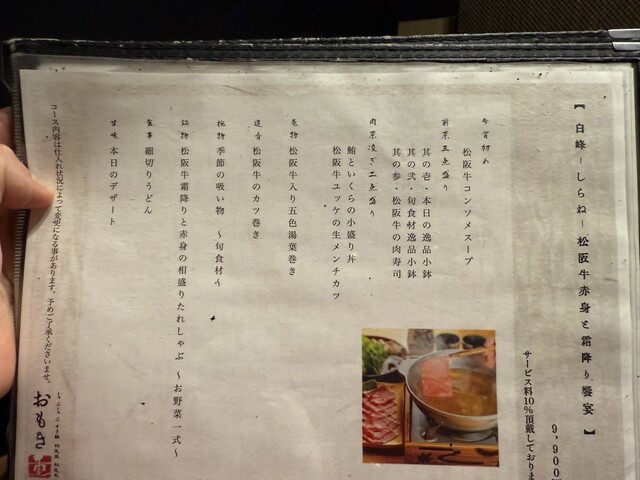 【 白峰－しらね－松阪牛赤身と霜降り饗宴 】
9,900
サービス料10%頂戴しておりま
松阪牛コンソメスープ
前菜三点盛り
其の壱・本日の逸品小鉢
其の弐・旬食材逸品小鉢
其の参・松阪牛の肉寿司
肉菜凌ぎ二点盛り
鮪といくらの小盛り丼
松阪牛ユッケの生メンチカツ
巻物 松阪牛入り五色湯葉巻き
進肴 松阪牛のカツ巻き
椀物 季節の吸い物 ～旬食材～
鍋物 松阪牛霜降りと赤身の相盛りたれしゃぶ ～お野菜一式～
食事 細切りうどん
甘味 本日のデザート
コース内容は仕入れ状況によって変更になる事があります。予めご了承くださいませ。
おもき